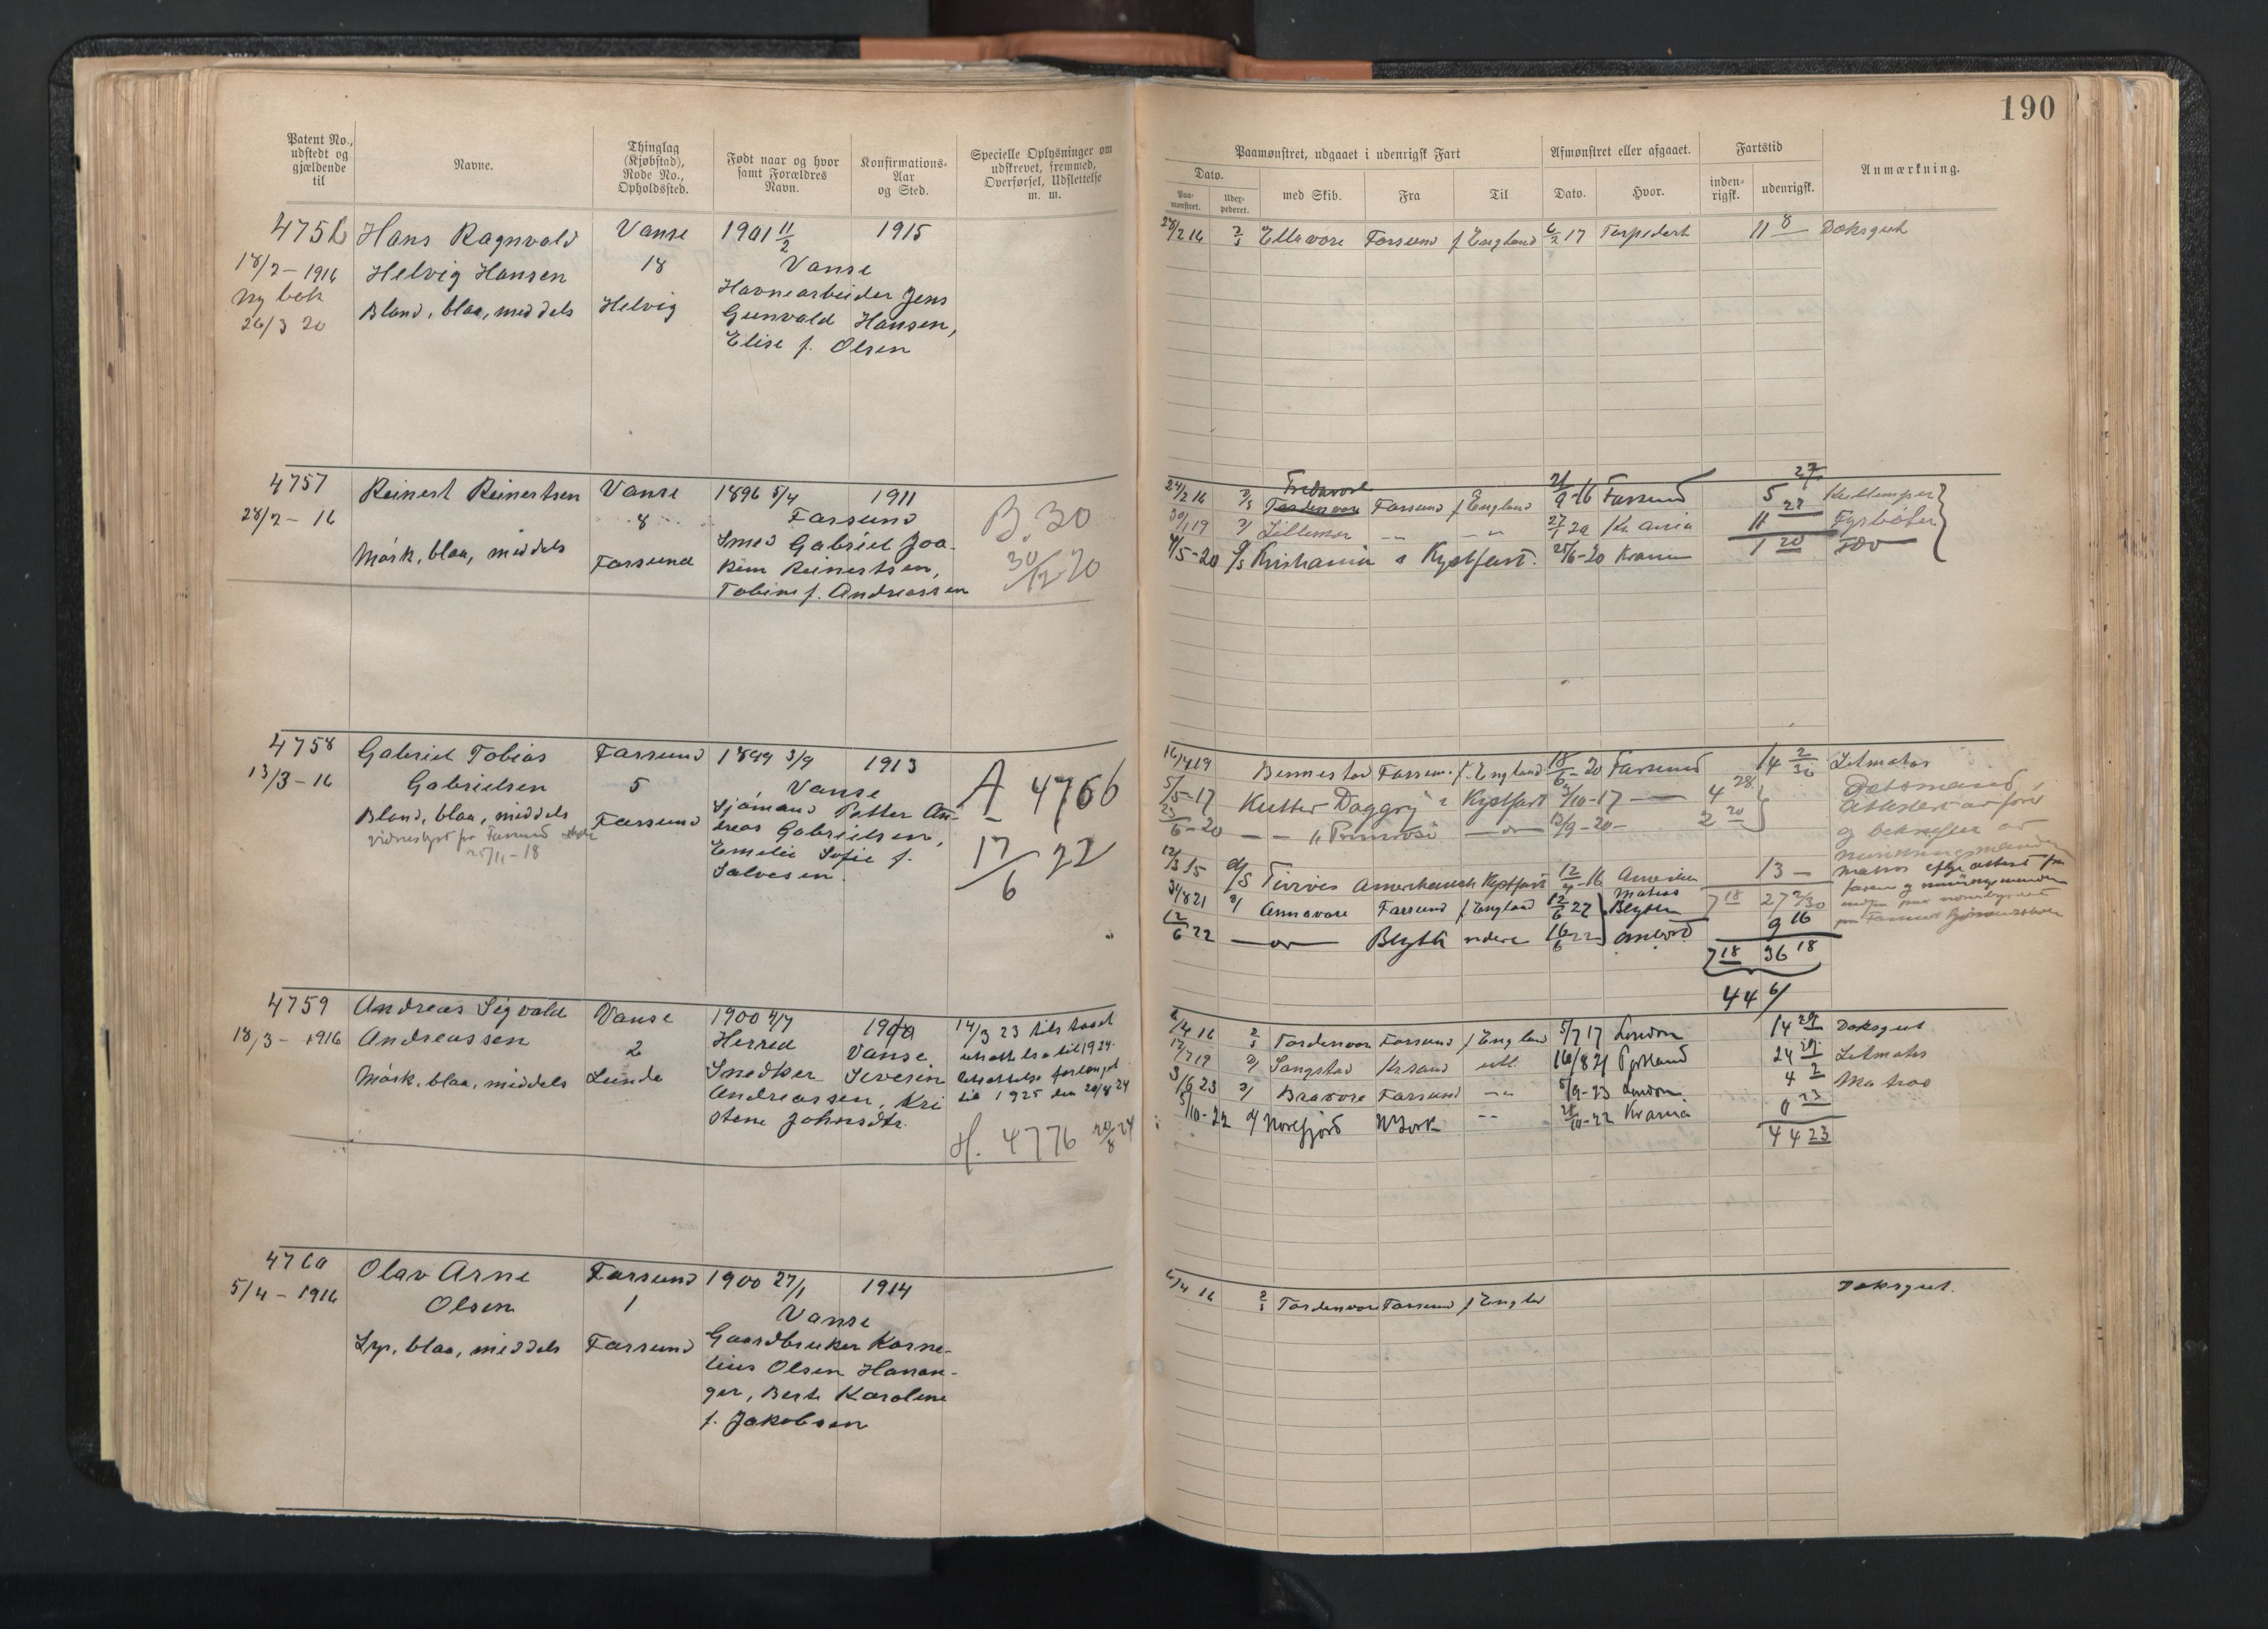 190
Patent No., udstedt og gjældende til
Navne.
Thinglag (Kjøbstad), Rode No., Opholdssted.
Født naar og hvor samt Forældres Navn.
Konfirmations-Aar og Sted.
Specielle Oplysninger om udskrevet, fremmed, Overførsel, Udslettelse m. m.
Paamønstret, udgaaet i udenrigsk Fart
Afmønstret eller afgaaet.
Fartstid
Anmærkning.
Dato.
Paa-mønstret.
Uder-pederet.
med Skib.
Fra
Til
Dato.
Hvor.
inden-rigsk.
udenrigsk.
4756 Hans Ragnvald Vanse 1901 11/2 1915
18/2 - 1916 Helvig Hansen 18 Vanse
Ny bok Havnearbeider Jens
26/3 20 Blond, blaa, middels Helvig Gunvald Hansen,
Elise f. Olsen
28/2 16 Ellavore Farsund f England 6/2 17 Torpedert 11 8 Dæksgut
4757 Reinert Reinertsen Vanse 1896 5/4 1911
28/2 - 16 8 Farsund B. 30
Smed Gabriel Joa-
Mörk, blaa, middels Farsund kim Reinertsen, 30/12-20
Tobine f. Andreassen
27
Fredavore
29/2 16 Tordenvore Farsund f England 21/9-16 Farsund 5 Kullemper
30/1 19 Lillemor 27/1 20 Kr.ania 11 27 Fyrbøter
4/5-20 Kristiania i Kystfart. 25/6-20 Krania 1 20
4758 Gabriel Tobias Farsund 1899 3/9 1913
13/3 - 16 Gabrielsen 5 Vanse A 4766
Blond, blaa, middels Farsund Sjömand Petter An-
dreas Gabrielsen,
25/11-18 Emelie Sofie f. 17/6 22
Salvesen.
16/4 19 Farsun. f. England 18/6-20 Farsund 14 2/30 Letmatros
5/5-17 Kutter Daggry i Kystfart 3/10-17 4 28
23/6-20 "Primrose" 13/9-20 2 20
Attestert av fører
og bekræftet av
12/3 15 d/s Amerikansk Kystfart 12/4-16 Amerika 13 - Matros
31/8 21 Annavore Farsund f England 12/6 22 Matros 7 18 27 2/30
Blyth 9 16
12/6 22 Blyth videre 16/6 22 ombord
7 18 36 18
44 6/
4759 Andreas Sigvald Vanse 1900 4/7 14/3 23 tilstaaet
18/3 - 1916 Andreassen 2 Herred Vanse utsættelse til 1924.
Mörk, blaa, middels Lunde Snedker Severin utsættelse forlænget
Andreassen, Kri til 1925 den 20/8 24
stene Johnsdtr.
H. 4776 20/8 24
2/4 16 Tordenvore Farsund f England 5/7 17 London 14 29 Dæksgut
17/7 19 Sangstad Krsand utl. 16/8 21 24 29 Letmatros
3/6 23 Braavore Farsund 5/9-23 London 4 2 Matros
5/10-22 Norefjord N York 28/10-22 Krania 0 23
44 23
4760 Olav Arne Farsund 1900 27/1 1914
5/4 - 1916 Olsen 1 Vanse
Lys, blaa, middels Farsund Gaardbruker Korne-
lius Olsen Hanan-
ger, Berte Karoline
f. Jakobsen
6/4 16 Tordenvore Farsund f Engld Dæksgut.